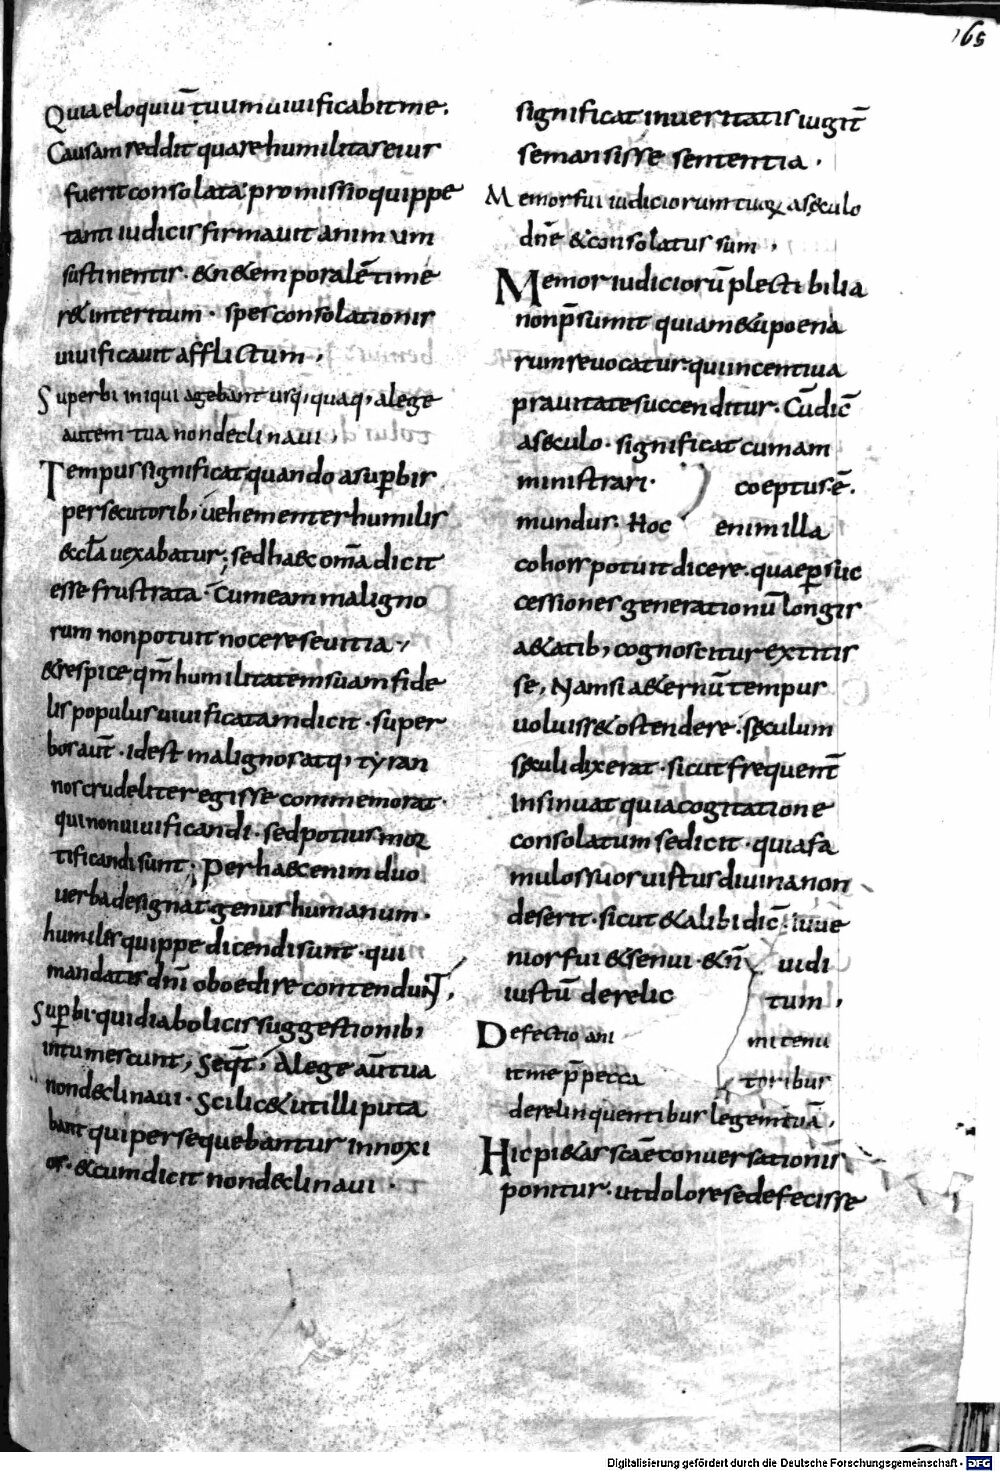 165
Quia eloquiū tuum uiuificabit me.
Causam reddit quare humilitas eius
fuerit consolata. promissio quippe
tanti iudicis firmauit animum
sustinentis. & n& emporalē time
r& interitum. spes consolationis
uiuificauit afflictum,
Superbi iniqui agebant usq; quaq; a lege
autem tua non declinaui,
Tempus significat quando a supbis
persecutorib; uehementer humilis
& cła uexabatur; sed haec om̄a dicit
esse frustrata. Cum eam maligno
rum non potuit nocere seuitia;
& respice qm̄ humilitatem suam fide
lis populus uiuificatam dicit. super
bos aut̄. id est malignos atq; tyran
nos crudeliter egisse commemorat.
qui non uiuificandi. sed potius mor
tificandi sunt; Per haec enim duo
uerba designat genus humanum.
humiles quippe dicendi sunt. qui
mandatis dnī oboedire contendunt,
Supbi. qui diabolicis suggestionib;
intumescunt, Seqt̄, A lege aūt tua
non declinaui. Scilic& ut illi puta
bant qui persequebantur innoxi
os. & cum dicit non declinaui.
significat in ueritatis iugit̄
se mansisse sententia.
Memor fui iudiciorum tuoꝝ a seculo
dn̄e & consolatus sum,
Memor iudiciorū plectibilia
non p̄sumit quia m&u poena
rum reuocatur. qui incentiua
prauitate succenditur. Cū dic̄
a seculo. significat cum am
ministrari. coeptus. ē.
mundus. Hoc enim illa
cohors potuit dicere. quae per suc
cessiones generationū longis
a&atib; cognoscitur extitis
se, Nam si a&ernū tempus
uoluiss& ostendere. sęculum
sęculi dixerat. sicut frequent̄
insinuat quia cogitatione
consolatum se dicit. quia fa
mulos suos uirtus diuina non
deserit. sicut & alibi dic̄ iuue
nior fui & senui. & n̄ uidi
iustū derelic tum,
Defectio ani mi tenu
it me p̄ pecca toribus
derelinquentibus legem tuā,
Hic pi&as sc̄ae conuersationis
ponitur. ut dolore se defecisse
Digitalisierung gefördert durch die Deutsche Forschungsgemeinschaft - DFG